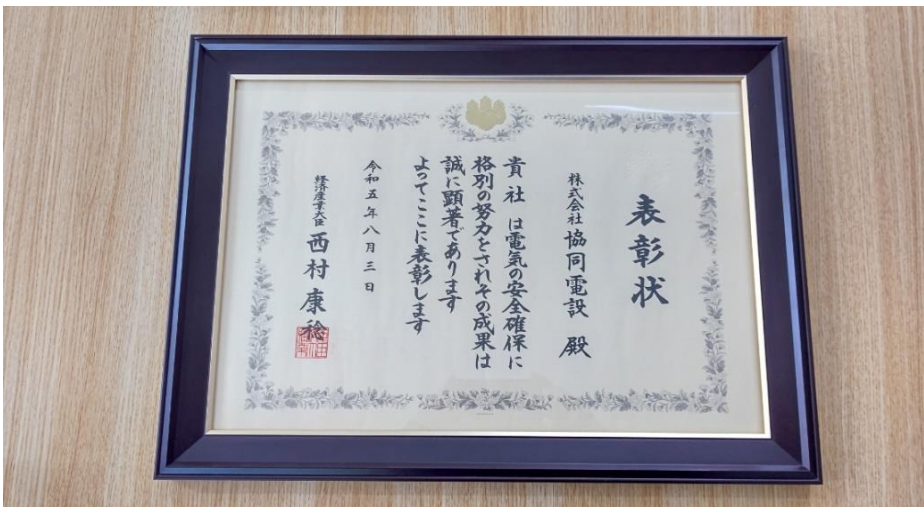 表彰状
株式会社 協同電設 殿
貴社は電気の安全確保に
格別の努力をされその成果は
誠に顕著であります
よってここに表彰します
令和五年八月三日
経済産業大臣 西村康稔